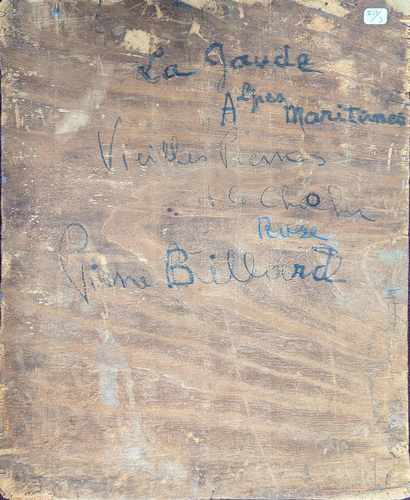 La Gaude
Alpes Maritimes
Vieilles Pierres
Rose
Pierre Billard